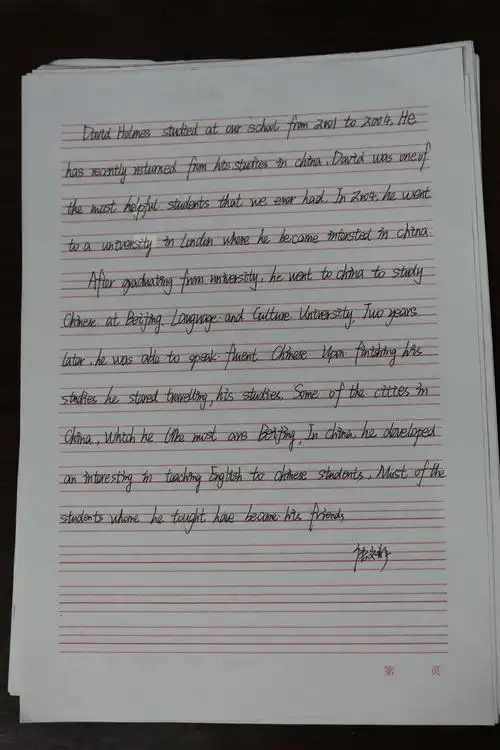 David Holmes studied at our school from 2001 to 2004. He
has recently returned from his studies in china. David was one of
the most helpful students that we ever had. In 2004. he went
to a university in London where he became intersted in china.
After graduating from university. he went to china to study
Chinese at Beijing. Language. and Culture. University. Two years
later. he was able to speak. fluent Chinese. Upon finishing his
studies he stared travelling, his studies. Some of the cities in
China, which he like must are Beijing, In china, he developed
an interesting in teaching English to chinese students. Must of the
students whome he tought have become his friends,
第 页